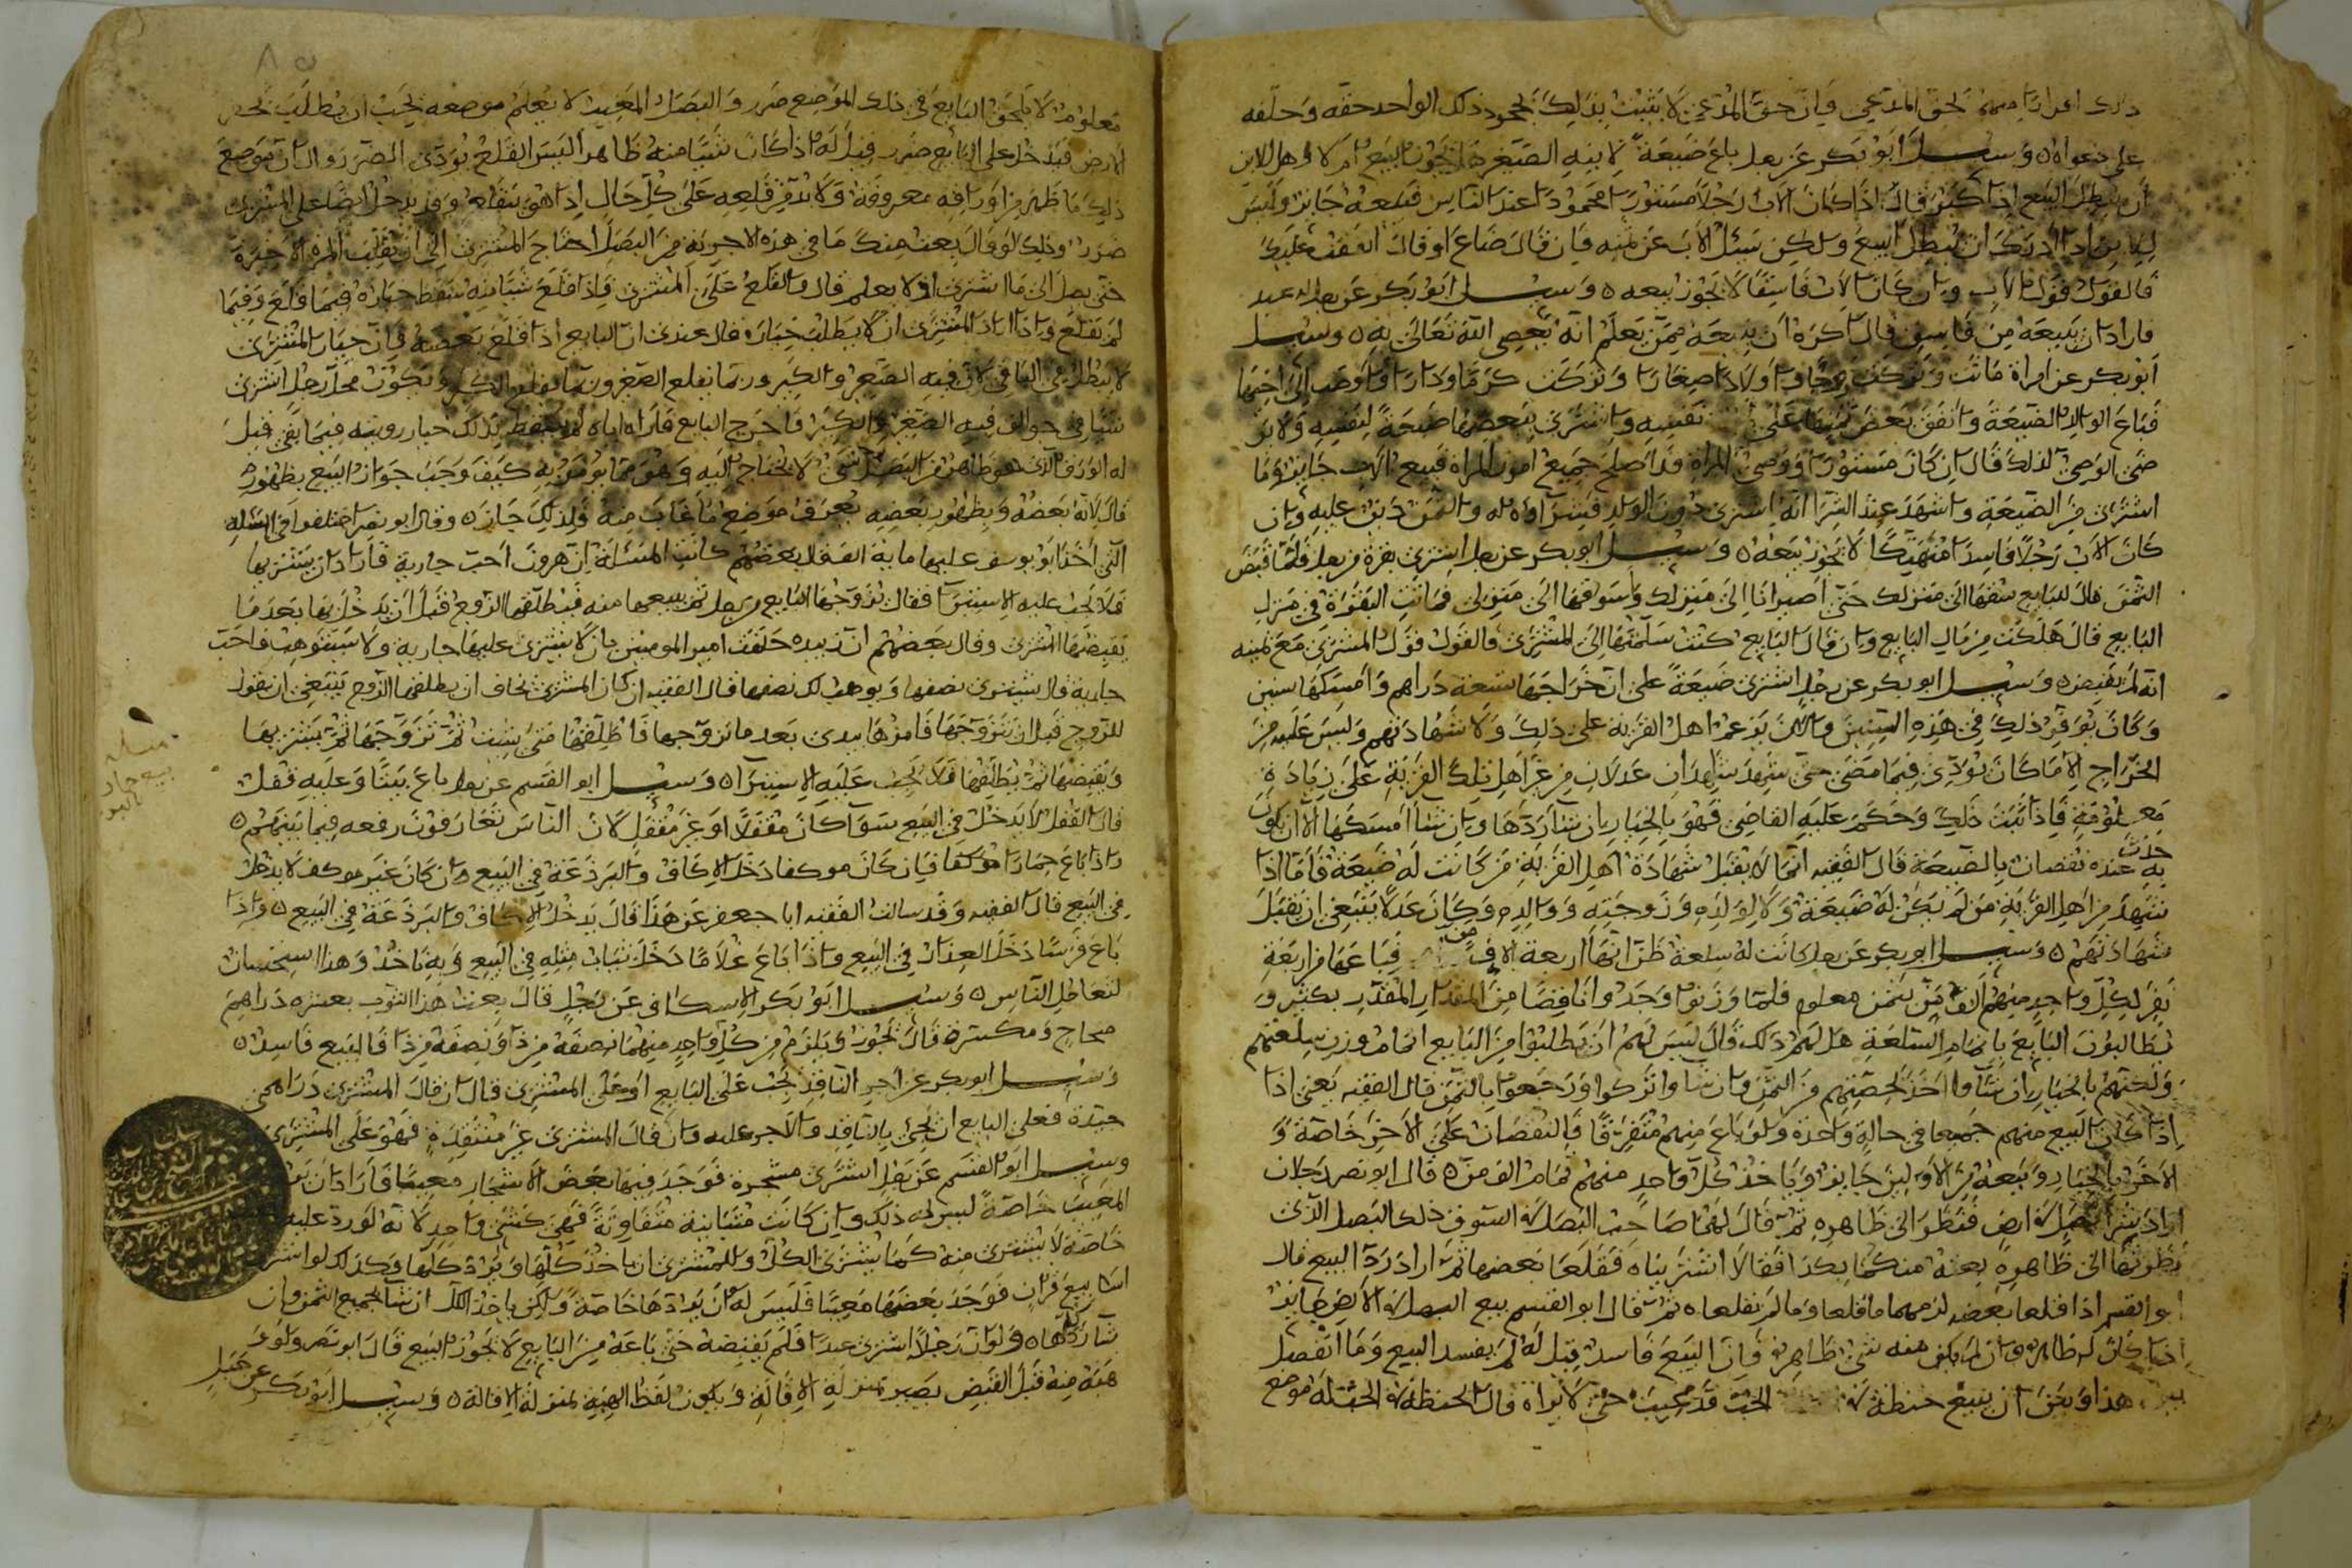 ذلك اقرارا منه بحق المدعي فان حق المدعي لا يثبت بذلك بجحود ذلك الواحد حقه وحلفه
على دعواه ٥ وسئل ابو بكر عن رجل باع ضيعة لابنه الصغير هل يجوز البيع ام لا وهل للابن
ان يبطل البيع اذا كبر قال اذا كان الاب رجلا مستورا محمودا عند الناس فبيعه جائز وليس
للابن اذا ادرك ان يبطل البيع ولكن يسئل الاب عن ثمنه فان قال ضاع او قال انفقت عليك
فالقول قول الاب وان كان الاب فاسقا لا يجوز بيعه ٥ وسئل ابو بكر عن رجل له عبد
فاراد ان يبيعه من فاسق قال اكره ان يبيعه ممن يعلم انه يعصي الله تعالى به ٥ وسئل
ابو بكر عن امراة ماتت وتركت زوجا واولادا صغارا وتركت كرما ودارا واوصت الى اخيها
فباع الوالد الضيعة وانفق بعض ثمنها على نفسه واشترى ببعضها ضيعة لنفسه ولم ير
ضى الوصي لذلك قال ان كان مستورا ووصي المراة قد اصلح جميع امور المراة فبيع الاب جائز وما
اشترى من الضيعة واشهد عند الشرا انه اشترى دون الولد فشراوه له والثمن دين عليه وان
كان الاب رجلا فاسدا متهتكا لا يجوز بيعه ٥ وسئل ابو بكر عن رجل اشترى بقرة من رجل فلما قبض
الثمن قال للبايع سقها الى منزلك حتى اصير انا الى منزلك واسوقها الى منزلي فماتت البقرة في منزل
البايع قال هلكت من مال البايع وان قال البايع كنت سلمتها الى المشتري فالقول قول المشتري مع يمينه
انه لم يقبض ٥ وسئل ابو بكر عن رجل اشترى ضيعة على ان خراجها تسعة دراهم وامسكها سنين
وكان يوفر ذلك في هذه السنين والان يزعم اهل القرية على ذلك ولا شهادتهم وليس عليه من
الخراج الا ما كان يودى فيما مضى حتى يشهد شاهدان عدلان من غير اهل تلك القرية على زيادة
معلومة فاذا ثبت ذلك وحكم عليه القاضي فهو بالخيار ان شا ردها وان شا امسكها الا ان يكون
حدث
به عنده نقصان بالضيعة قال الفقيه انما لا يقبل شهادة اهل القرية من كانت له ضيعة فاما اذا
شهد من اهل القرية من لم يكن له ضيعة ولا لولده وزوجته ووالده وكان عدلا ينبغي ان تقبل
شهادتهم ٥ وسئل ابو بكر عن رجل كانت له سلعة ظن انها اربعة الاف من فباعها من اربعة
نفر لكل واحد منهم الف من بثمن معلوم فلما وزنوا وجدوا ناقصا من المقدار المقدر بكثير و
يطالبون البايع باتمام السلعة هل لهم ذلك قال ليس لهم ان يطلبوا من البايع اتمام وزن سلعتهم
ولكنهم بالخيار ان شاوا اخذ بحصتهم من الثمن وان شاوا تركوا ورجعوا بالثمن قال الفقيه يعني اذا
اذا كان البيع منهم جميعا في حالة واحدة ولو باع منهم متفرقا فالنقصان على الاخر خاصة و
الاخر بالخيار وبيعه من الاولين جايز وياخذ كل واحد منهم تمام الف من ٥ قال ابو نصر رجلان
ارادا شرا بصل في ارض فنظرا الى ظاهره ثم قال لهما صاحب البصل استوف ذلك البصل الذي
نظرتما الى ظاهره بعته منكما بكذا فقالا اشتريناه فقلعا بعضها ثم ارادا رد البيع قال
ابو القسم اذا قلعا بعضه لزمهما ما قلعا وما لم يقلعاه ثم قال ابو القسم بيع البصل في الارض جايز
اذا كان له ظاهر وان لم يكن منه شي ظاهر فان البيع فاسد قيل له لم يفسد البيع وما الفصل
بين هذا وبين ان يبيع حنطة في الجب قد غيبت حتى لا يراه قال الحنطة في الجب له موضع
معلوم لا يلحق البايع في ذلك الموضع ضرر والبصل المغيب لا يعلم موضعه يجب ان يطلب تحت
الارض فيدخل على البايع ضرر قيل له اذا كان شيا منه ظاهر اليس القلع يودى الضرر والان موضع
ذلك ما ظهر من اوراقه معروفة ولا بد من قلعه على كل حال اذا هو يقلعه وقد يدخل ايضا على المشتري
ضرر وذلك لو قال بعت منك ما في هذه الاجربة من البصل احتاج المشتري الى ان يقلب المرة الاخيرة
حتى يصل الى ما اشترى اولا يعلم قال والقلع على المشتري فاذا قلع شيا منه سقط خياره فيما قلع وفيما
لم يقلع واذا اراد المشتري ان لا يبطل خياره قال عندي ان البايع اذا قلع بعضه فان خيار المشتري
لا يبطل في الباقي لان فيه الصغير والكبير وربما يقلع الصغير وربما يقلع الكبير ويكون محل رجل اشترى
شيا في جوالق فيه الصغير والكبير فاخرج البايع فاراه اياه لم يسقط بذلك خيار رويته فيما بقي قيل
له الورق الذي هو ظاهر من البصل شي لا يحتاج اليه وهو مما يومر به كيف وجب جواز البيع بظهوره
قال لانه بعضه وبظهور بعضه يعرف موضع ما غاب منه فلذلك جاز ٥ وقال ابو نصر اختلفوا في المسئلة
التي اخذ ابو يوسف عليها ماية الف قال بعضهم كانت المسئلة ان هرون احب جارية فاراد ان يشتريها
فلا يجب عليه الاستبرا فقال تزوجها البايع من رجل ثم يبيعها منه فيطلقها الزوج قبل ان يدخل بها بعد ما
يقبضها المشتري وقال بعضهم ان زبيدة حلفت امير المومنين بان لا يشتري عليها جارية ولا يستوهب فاحب
جارية قال يشترى نصفها ويوهب لك نصفها قال الفقيه ان كان المشتري يخاف ان يطلقها الزوج ينبغي ان يقول
للزوج قبل ان يتزوجها فامرها بيدي بعد ما تزوجها فاطلقها متى شيت ثم تزوجها ثم يشتريها
ويقبضها ثم يطلقها فلا يجب عليه الاستبرا ٥ وسئل ابو القسم عن رجل باع بيتا وعليه قفل
قال القفل لا يدخل في البيع سوا كان مقفلا او غير مقفل لان الناس تعارفون رفعه فيما بينهم ٥
واذا باع حمارا موكفا فان كان موكفا دخل الاكاف والبرذعة في البيع وان كان غير موكف لا يدخل
في البيع قال الفقيه وقد سالت الفقيه ابا جعفر عن هذا قال يدخل الاكاف والبرذعة في البيع ٥ واذا
باع فرسا دخل العذار في البيع واذا باع غلاما دخل ثياب مثله في البيع وبه ناخذ وهذا استحسان
لتعامل الناس ٥ وسئل ابو بكر الاسكاف عن رجل قال بعت هذا الثوب بعشرة دراهم
صحاح ومكسرة قال يجوز ويلزم من كل واحد منهما نصفه من ذا ونصفه من ذا فالبيع فاسد ٥
وسئل ابو بكر عن اجر الناقد يجب على البايع او على المشتري قال ان قال المشتري دراهمي
جيدة فعلى البايع ان يجي بالناقد والاجر عليه وان قال المشتري غير منتقدة فهو على المشتري
وسئل ابو القسم عن رجل اشترى مشجرة فوجد فيها بعض الاشجار معيبا فاراد ان يرد
المعيب خاصة ليس له ذلك وان كانت متباينة متفاوتة فهي كشي واحد لانه لو رد عليه
خاصة لا يشترى منه كما يشترى الكل وللمشتري ان ياخذ كلها او يرد كلها وكذلك لو اشترى
اسابيع قران فوجد بعضها معيبا فليس له ان يردها خاصة ولكن ياخذ الكل ان شا بجميع الثمن وان
شا ردها ٥ ولو ان رجلا اشترى عبدا فلم يقبضه حتى باعه من البايع لا يجوز البيع قال ابو نصر ولو و
هبه منه قبل القبض يصير بمنزلة الاقالة ويكون لفظ الهبة بمنزلة الاقالة ٥ وسئل ابو بكر عن رجل
مسئلة
بيع حمار